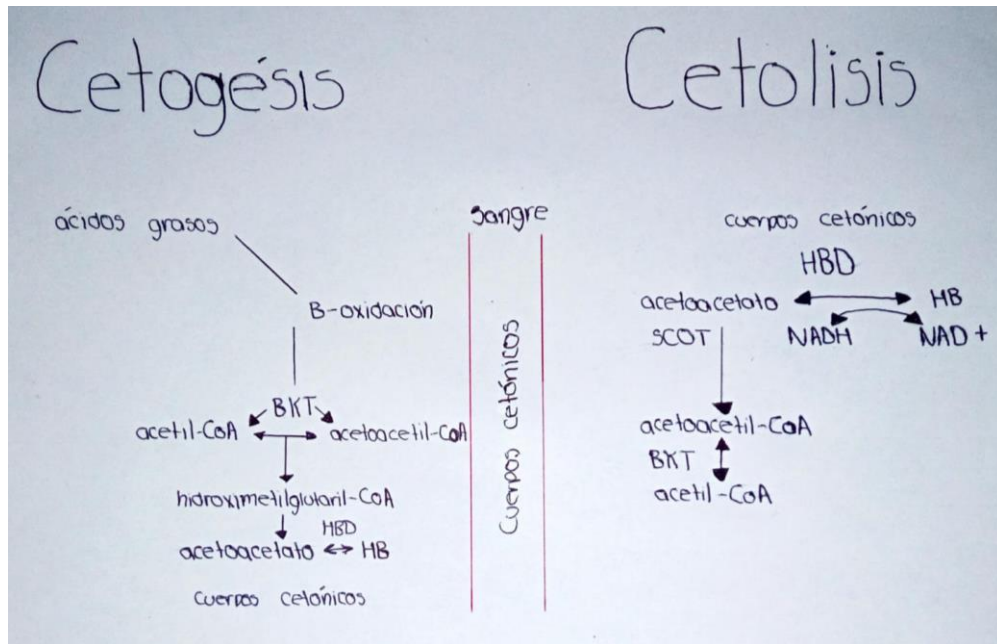 Cetogésis
ácidos grasos
B-oxidación
BKT
acetil-CoA acetoacetil-CoA
hidroximetilglutaril-CoA
HBD
acetoacetato HB
cuerpos cetónicos
Sangre
Cuerpos cetónicos
Cetolisis
cuerpos cetónicos
HBD
acetoacetato HB
SCOT NADH NAD+
acetoacetil-CoA
BKT
acetil-CoA